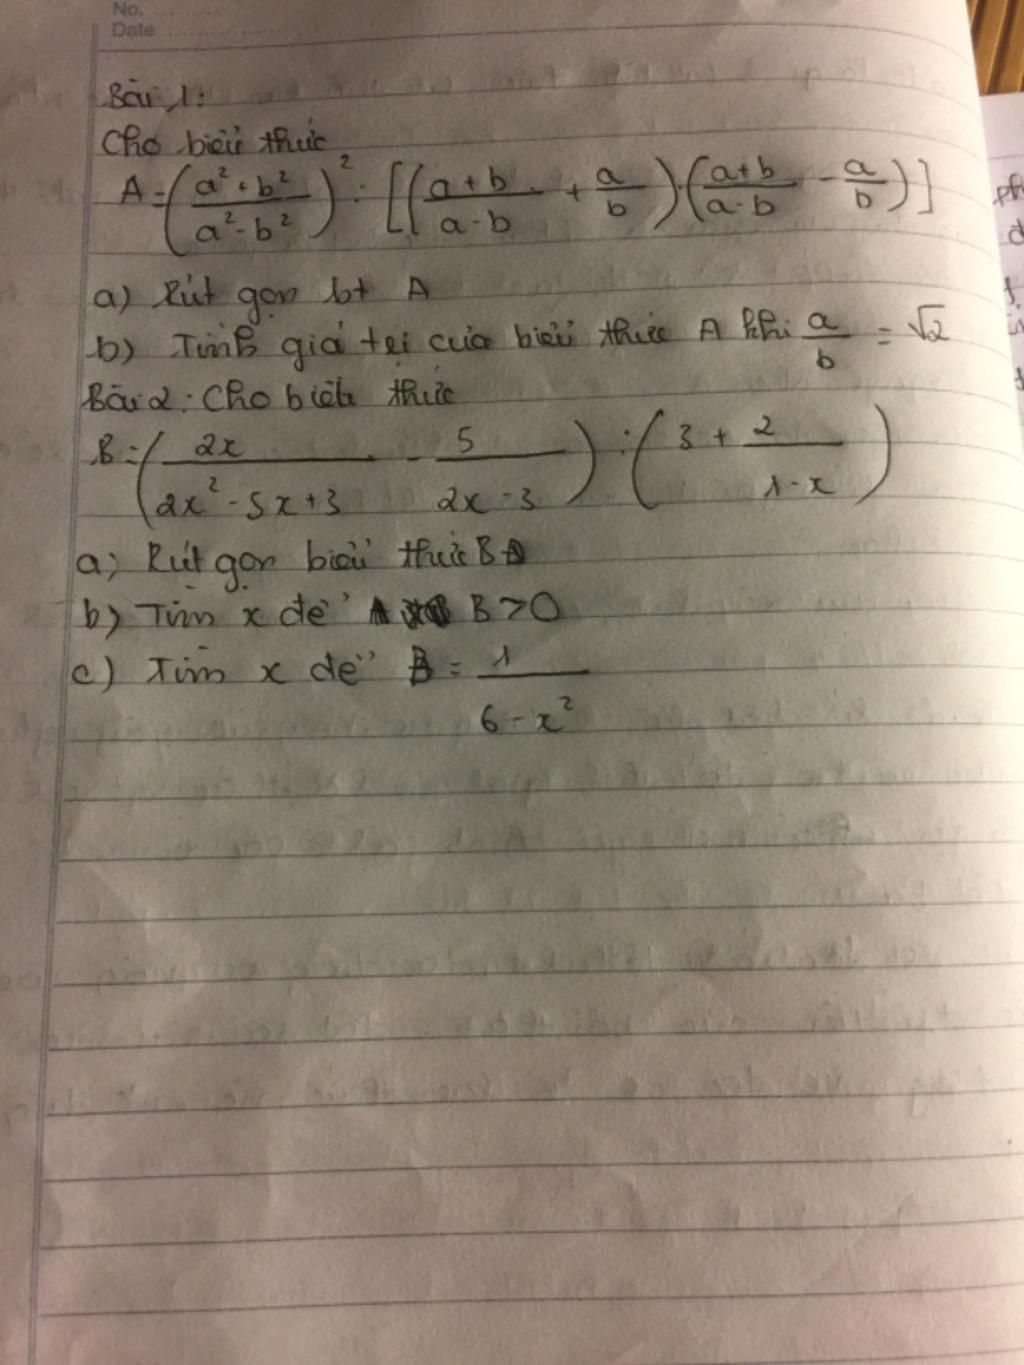 No.
Date
Bài 1:
Cho biểu thức
A = ((a² + b²)/(a² - b²))² : [((a + b)/(a - b) + a/b) · ((a + b)/(a - b) - a/b)]
a) Rút gọn bt A
b) Tính giá trị của biểu thức A khi a/b = √2
Bài 2: Cho biểu thức
B = (2x/(2x² - 5x + 3) - 5/(2x - 3)) : (3 + 2/(1 - x))
a) Rút gọn biểu thức B
b) Tìm x để B > 0
c) Tìm x để B = 1/(6 - x²)